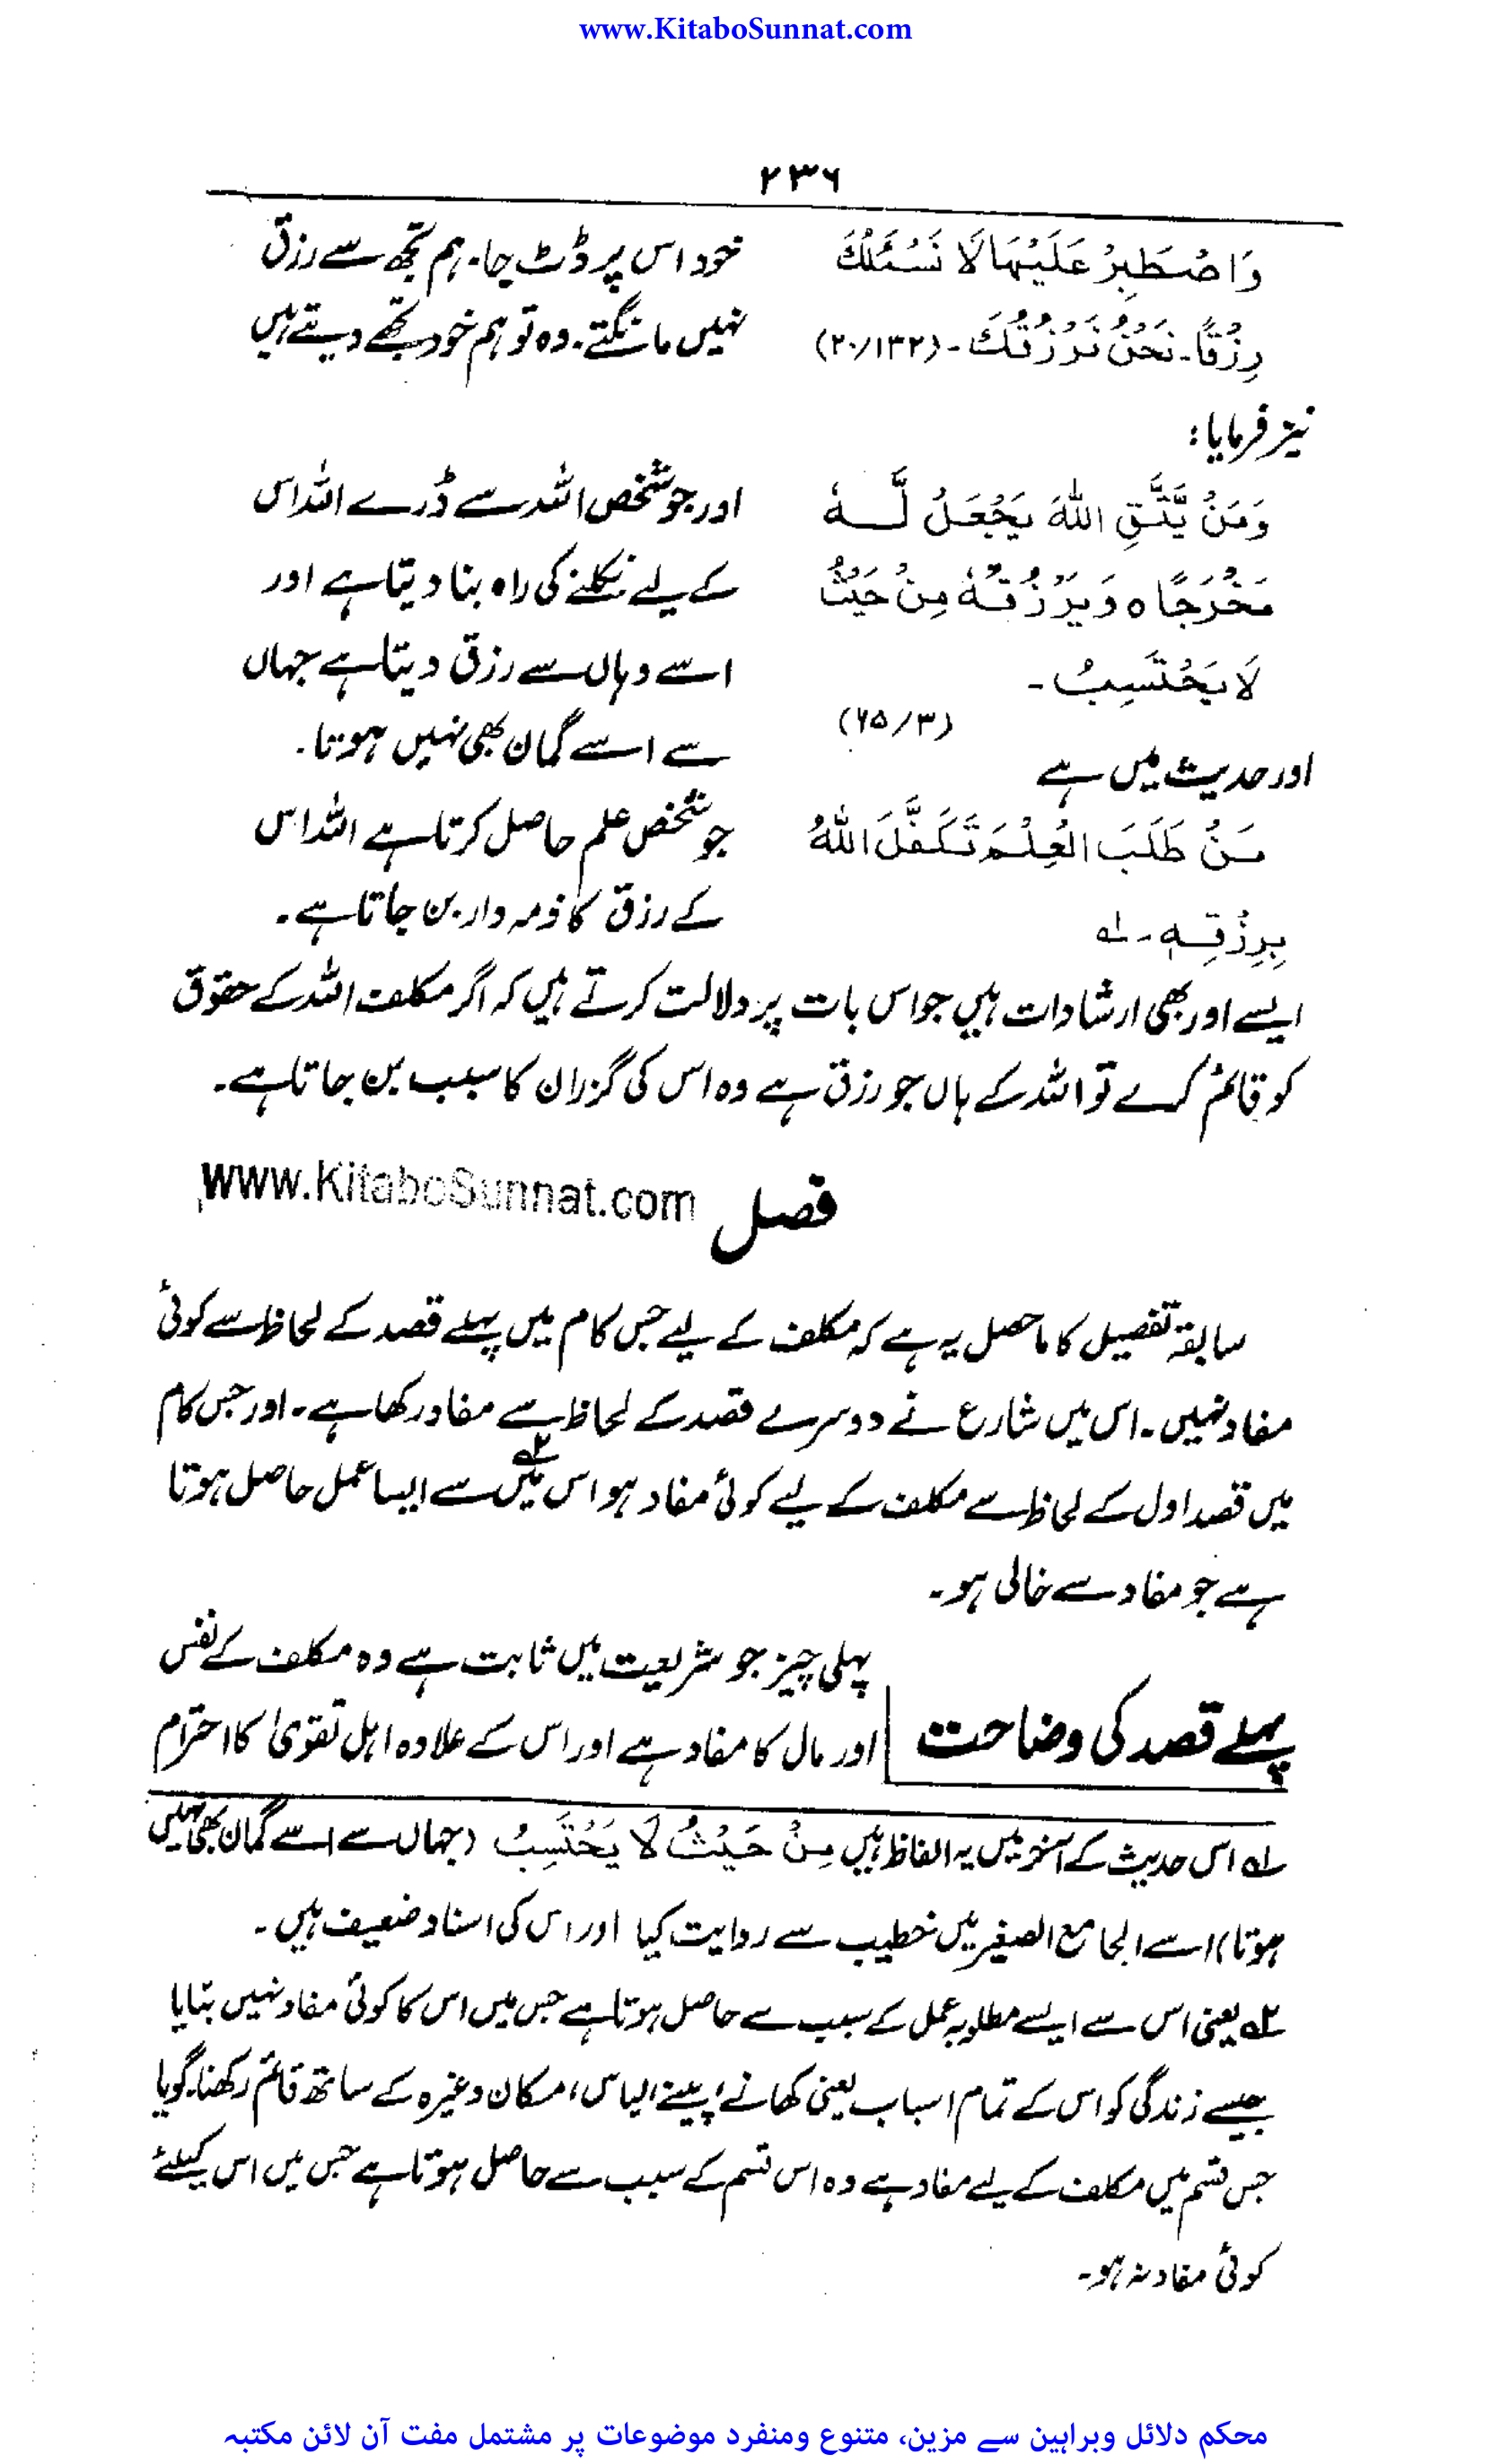 www.KitaboSunnat.com
۲۳۶
وَاصْطَبِرْ عَلَيْهَا لَا نَسْئَلُكَ خود اس پر ڈٹ جا۔ ہم تجھ سے رزق
رِزْقًا۔ نَحْنُ نَرْزُقُكَ۔ (۲۰/۱۳۲) نہیں مانگتے۔ وہ تو ہم خود تجھے دیتے ہیں
نیز فرمایا:
وَمَنْ يَّتَّقِ اللّٰهَ يَجْعَلْ لَّـــهٗ اور جو شخص اللہ سے ڈرے اللہ اس
مَخْرَجًا ٥ وَيَرْزُقْـهُ مِنْ حَيْثُ کے لیے نکلنے کی راہ بنا دیتا ہے اور
لَا يَحْتَسِبُ ۔ اسے وہاں سے رزق دیتا ہے جہاں
(۶۵/۳) سے اسے گمان بھی نہیں ہوتا۔
اور حدیث میں ہے
مَـنْ طَلَبَ الْعِلْـمَ تَكَفَّلَ اللّٰهُ جو شخص علم حاصل کرتا ہے اللہ اس
بِرِزْقِـهٖ۔ لہ کے رزق کا ذمہ دار بن جاتا ہے۔
ایسے اور بھی ارشادات ہیں جو اس بات پر دلالت کرتے ہیں کہ اگر مکلف اللہ کے حقوق
کو قائم کرے تو اللہ کے ہاں جو رزق ہے وہ اس کی گزران کا سبب بن جاتا ہے۔
فصل www.KitaboSunnat.com
سابقہ تفصیل کا ماحصل یہ ہے کہ مکلف کے لیے جس کام میں پہلے قصد کے لحاظ سے کوئی
مفاد نہیں۔ اس میں شارع نے دوسرے قصد کے لحاظ سے مفاد رکھا ہے۔ اور جس کام
میں قصد اول کے لحاظ سے مکلف کے لیے کوئی مفاد ہو اس میں ۲ سے ایسا عمل حاصل ہوتا
ہے جو مفاد سے خالی ہو۔
پہلے قصد کی وضاحت
پہلی چیز جو شریعت میں ثابت ہے وہ مکلف کے نفس
اور مال کا مفاد ہے اور اس کے علاوہ اہل تقویٰ کا احترام
لہ اس حدیث کے آخر میں یہ الفاظ ہیں مِنْ حَيْثُ لَا يَحْتَسِبُ (جہاں سے اسے گمان بھی نہیں
ہوتا) اسے الجامع الصغیر میں خطیب سے روایت کیا اور اس کی اسناد ضعیف ہیں ۔
۲ یعنی اس سے ایسے مطلوبہ عمل کے سبب سے حاصل ہوتا ہے جس میں اس کا کوئی مفاد نہیں بتایا
جیسے زندگی کو اس کے تمام اسباب یعنی کھانے، پینے، لباس، مکان وغیرہ کے ساتھ قائم رکھنا۔ گویا
جس قسم میں مکلف کے لیے مفاد ہے وہ اس قسم کے سبب سے حاصل ہوتا ہے جس میں اس کیلئے
کوئی مفاد نہ ہو۔
محکم دلائل وبراہین سے مزین، متنوع ومنفرد موضوعات پر مشتمل مفت آن لائن مکتبہ